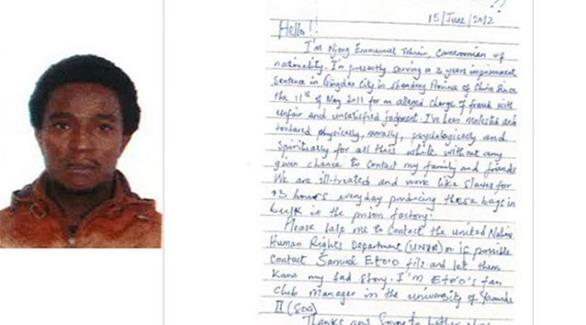 15/June/2012
Hello!!
I'm Njong Emmanuel Tohnain, Cameroonian of
nationality. I'm presently serving a 3 years imprisonment
Sentence in Qingdao City in Shandong Province of China Since
the 11th of May 2011 for an alleged charge of fraud with
unfair and unsatisfied judgment. I've been molested and
tortured physically, morally, psychologically and
Spiritually for all this while without any
given chance to contact my family and friends
We are ill-treated and work like slaves for
13 hours everyday producing these bags in
bulk in the prison factory.
Please help me to contact the united Nations
Human Rights Department (UNHR) or if possible
contact Samuel Eto'o fils and let them
know my sad story. I'm Eto'o's fan
Club manager in the university of Yaounde
II (SOA)
Thanks and Sorry to bother